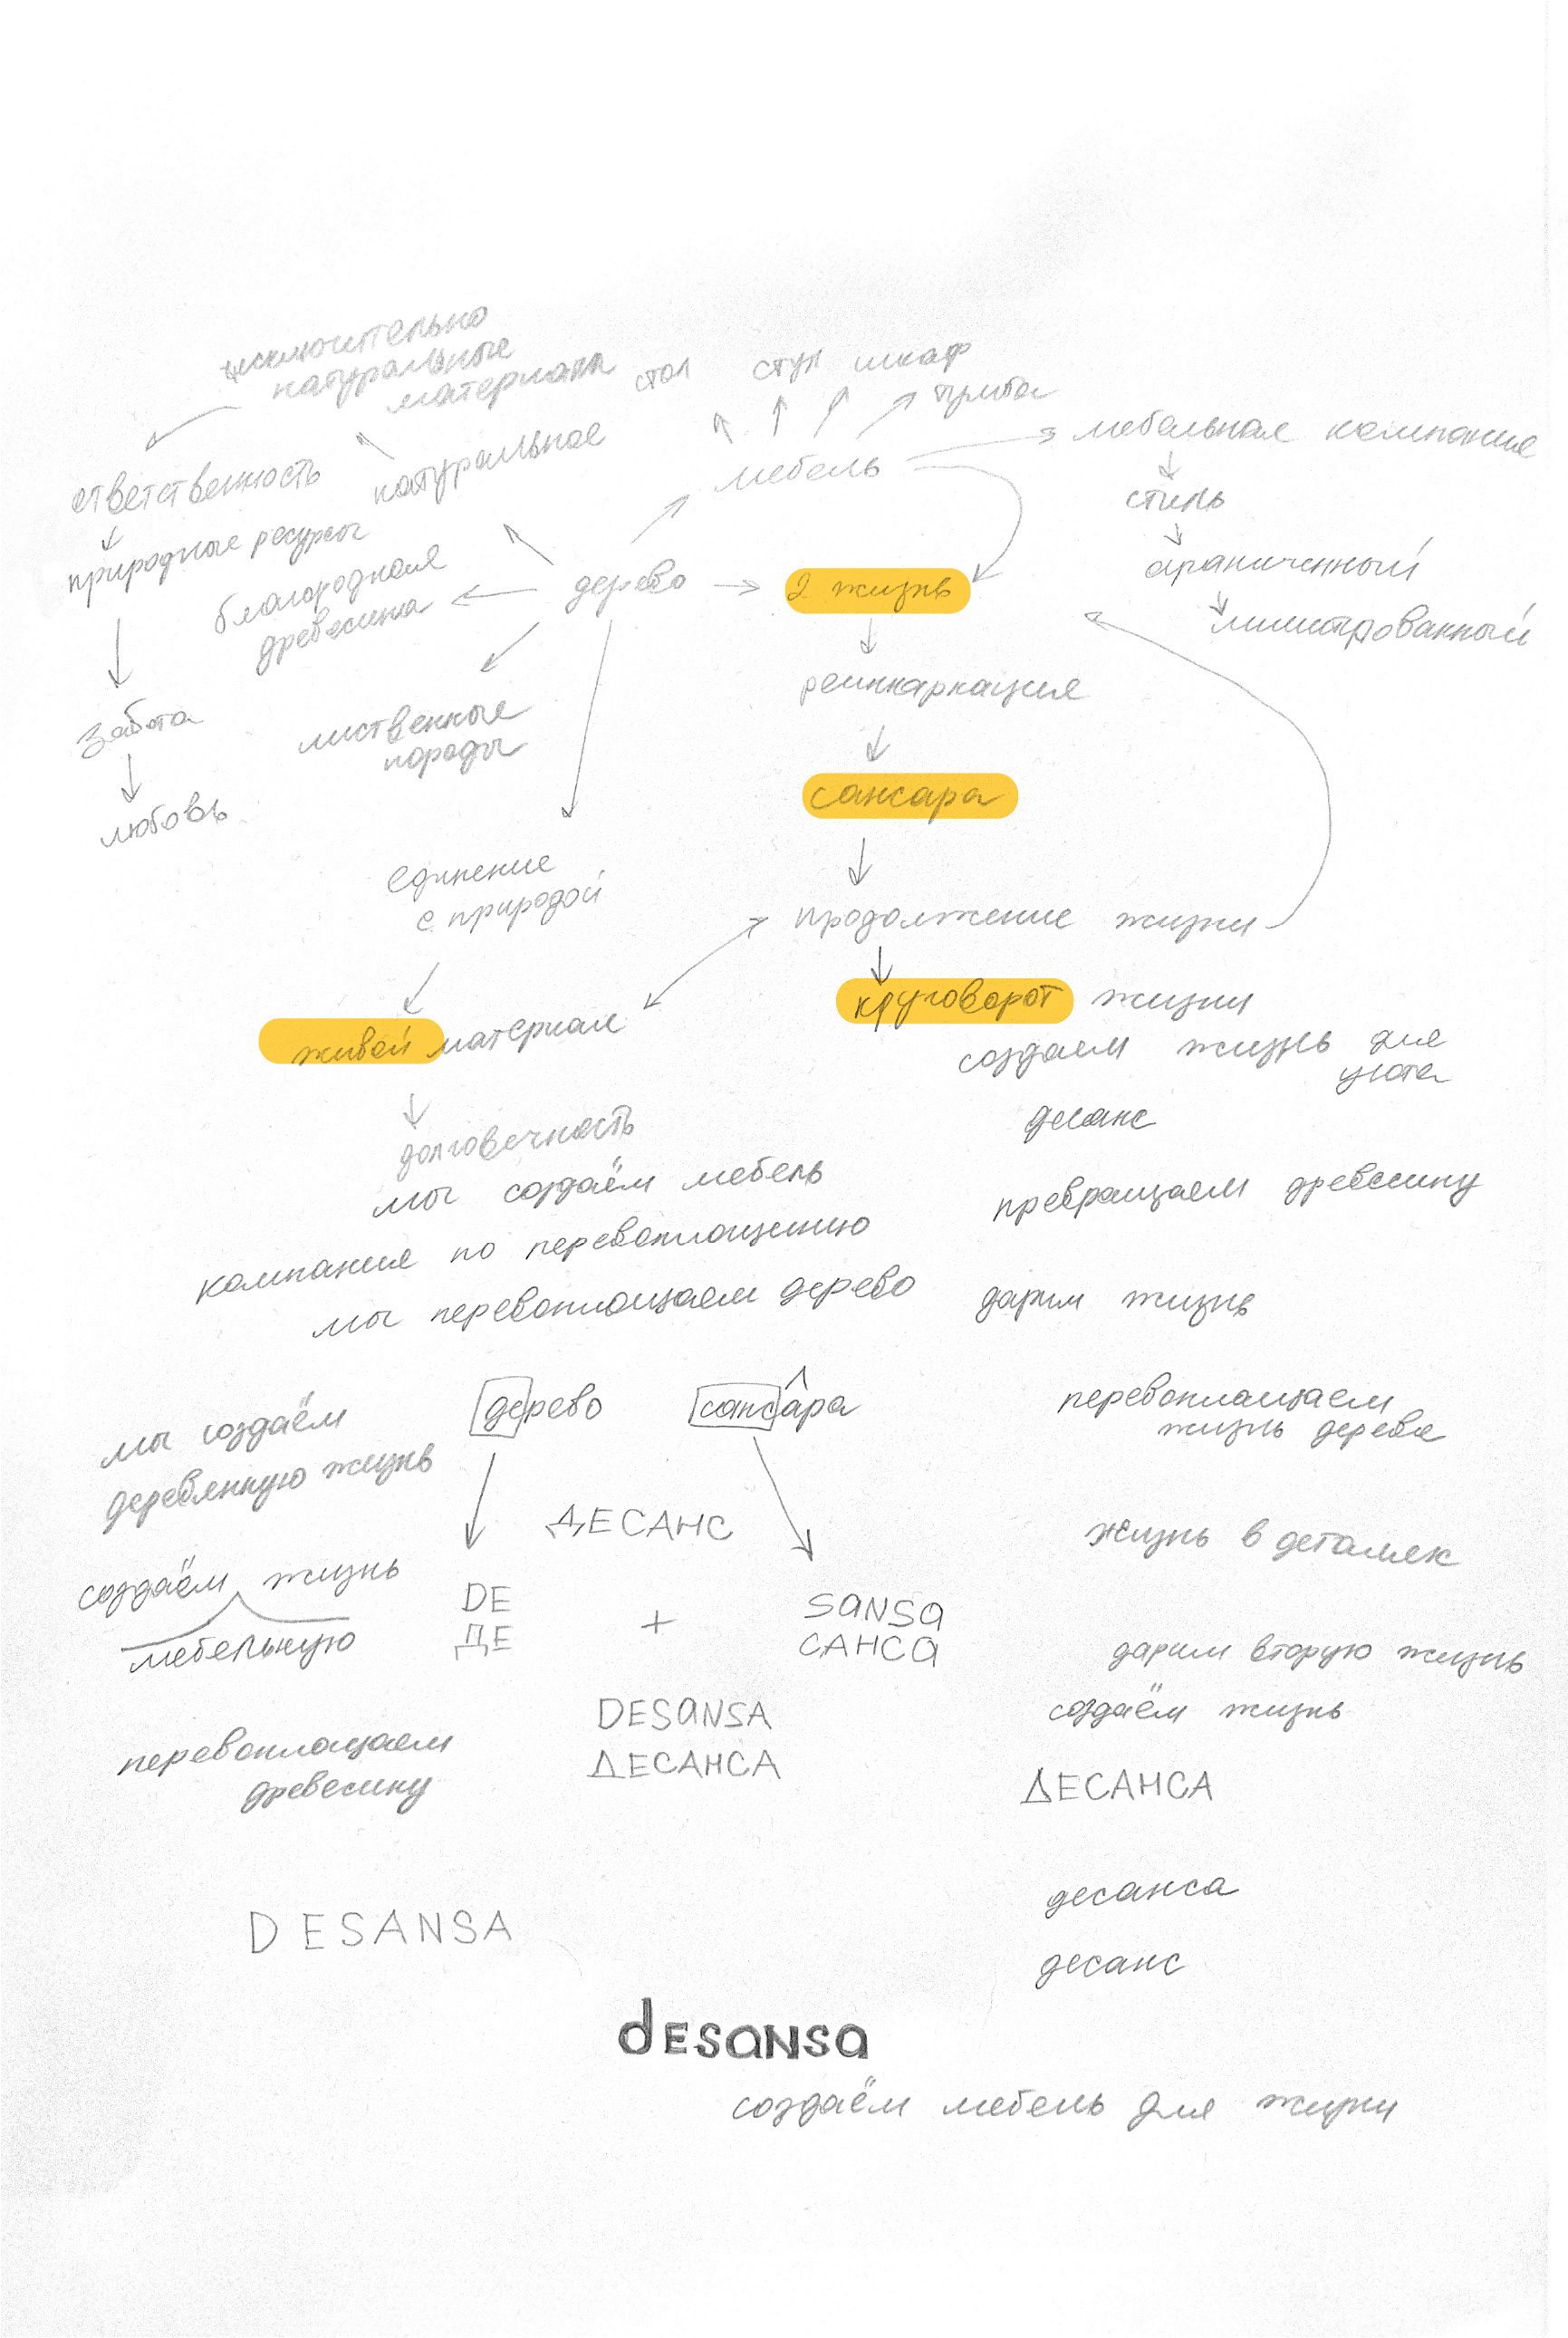 исключительно
натуральные
материалы
стол
стул
шкаф
тумба
мебельная компания
ответственность
натуральное
мебель
стиль
природные ресурсы
благородная
древесина
дерево
2 жизнь
ограниченный
лимитрованный
реинкарнация
забота
лиственные
породы
сансара
любовь
единение
с природой
продолжение жизни
круговорот жизни
живой материал
создаем жизнь для
уюта
десанс
долговечность
мы создаём мебель
превращаем древесину
компания по перевоплощению
мы перевоплощаем дерево
дарим жизнь
дерево
сансара
перевоплощаем
жизнь дерева
мы создаём
деревянную жизнь
ДЕСАНС
жизнь в деталях
создаём жизнь
мебельную
DE
ДЕ
+
SANSA
САНСА
дарим вторую жизнь
создаём жизнь
DESANSA
ДЕСАНСА
перевоплощаем
древесину
ДЕСАНСА
десанса
DESANSA
десанс
dESANSA
создаём мебель для жизни